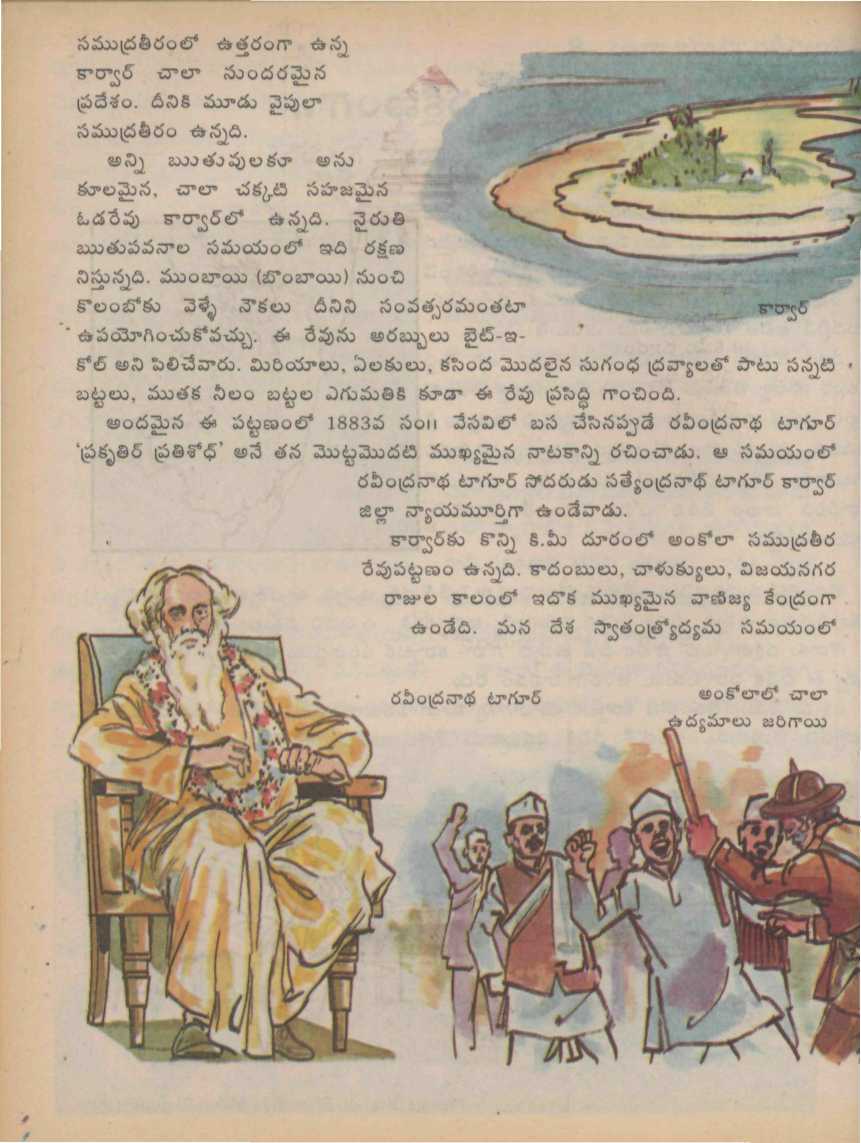 సముద్రతీరంలో ఉత్తరంగా ఉన్న
కార్వార్ చాలా సుందరమైన
ప్రదేశం. దీనికి మూడు వైపులా
సముద్రతీరం ఉన్నది.
అన్ని ఋతువులకూ అను
కూలమైన, చాలా చక్కటి సహజమైన
ఓడరేవు కార్వార్‌లో ఉన్నది. నైరుతి
ఋతుపవనాల సమయంలో ఇది రక్షణ
నిస్తున్నది. ముంబాయి (బొంబాయి) నుంచి
కొలంబోకు వెళ్ళే నౌకలు దీనిని సంవత్సరమంతటా
ఉపయోగించుకోవచ్చు. ఈ రేవును అరబ్బులు బైట్-ఇ-
కోల్ అని పిలిచేవారు. మిరియాలు, ఏలకులు, కసింద మొదలైన సుగంధ ద్రవ్యాలతో పాటు సన్నటి
బట్టలు, ముతక నీలం బట్టల ఎగుమతికి కూడా ఈ రేవు ప్రసిద్ధి గాంచింది.
అందమైన ఈ పట్టణంలో 1883వ సం॥ వేసవిలో బస చేసినప్పుడే రవీంద్రనాథ టాగూర్
'ప్రకృతిర్ ప్రతిశోధ్' అనే తన మొట్టమొదటి ముఖ్యమైన నాటకాన్ని రచించాడు. ఆ సమయంలో
రవీంద్రనాథ టాగూర్ సోదరుడు సత్యేంద్రనాథ్ టాగూర్ కార్వార్
జిల్లా న్యాయమూర్తిగా ఉండేవాడు.
కార్వార్‌కు కొన్ని కి.మీ దూరంలో అంకోలా సముద్రతీర
రేవుపట్టణం ఉన్నది. కాదంబులు, చాళుక్యులు, విజయనగర
రాజుల కాలంలో ఇదొక ముఖ్యమైన వాణిజ్య కేంద్రంగా
ఉండేది. మన దేశ స్వాతంత్ర్యోద్యమ సమయంలో
కార్వార్
రవీంద్రనాథ టాగూర్
అంకోలాలో చాలా
ఉద్యమాలు జరిగాయి